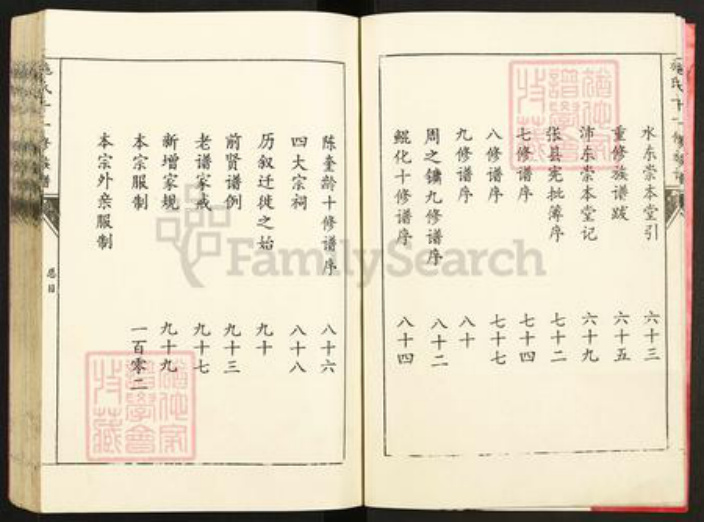 水东崇本堂引 六十三
重修族谱跋 六十五
沛东崇本堂记 六十九
张县宪批簿序 七十二
七修谱序 七十四
八修谱序 七十七
九修谱序 八十
周之镛九修谱序 八十二
鲲化十修谱序 八十四
陈奎龄十修谱序 八十六
四大宗祠 八十八
历叙迁徙之始 九十
前贤谱例 九十三
老谱家戒 九十七
新增家规 九十九
本宗服制 一百零二
本宗外亲服制
总目
FamilySearch